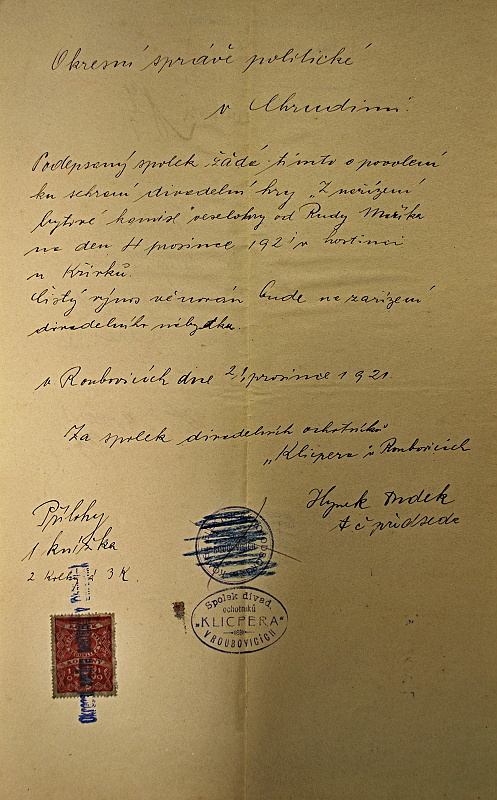 Okresní správě politické
v Chrudimi.
Podepsaný spolek žádá tímto o povolení
ku sehraní divadelní hry „Z nařízení
bytové komise" veselohry od Rudy Maříka
na den 4 prosince 1921 v hostinci
u Křivků.
Čistý výnos věnován bude na zařízení
divadelního nábytku.
v Roubovicích dne 2/prosince 1921.
Za spolek divadelních ochotníků
„Klicpera v Roubovicích
Hynek
t č předseda
Přílohy
1 knížka
2 3 K.
Spolek divad.
ochotníků
"KLICPERA"
V ROUBOVICÍCH